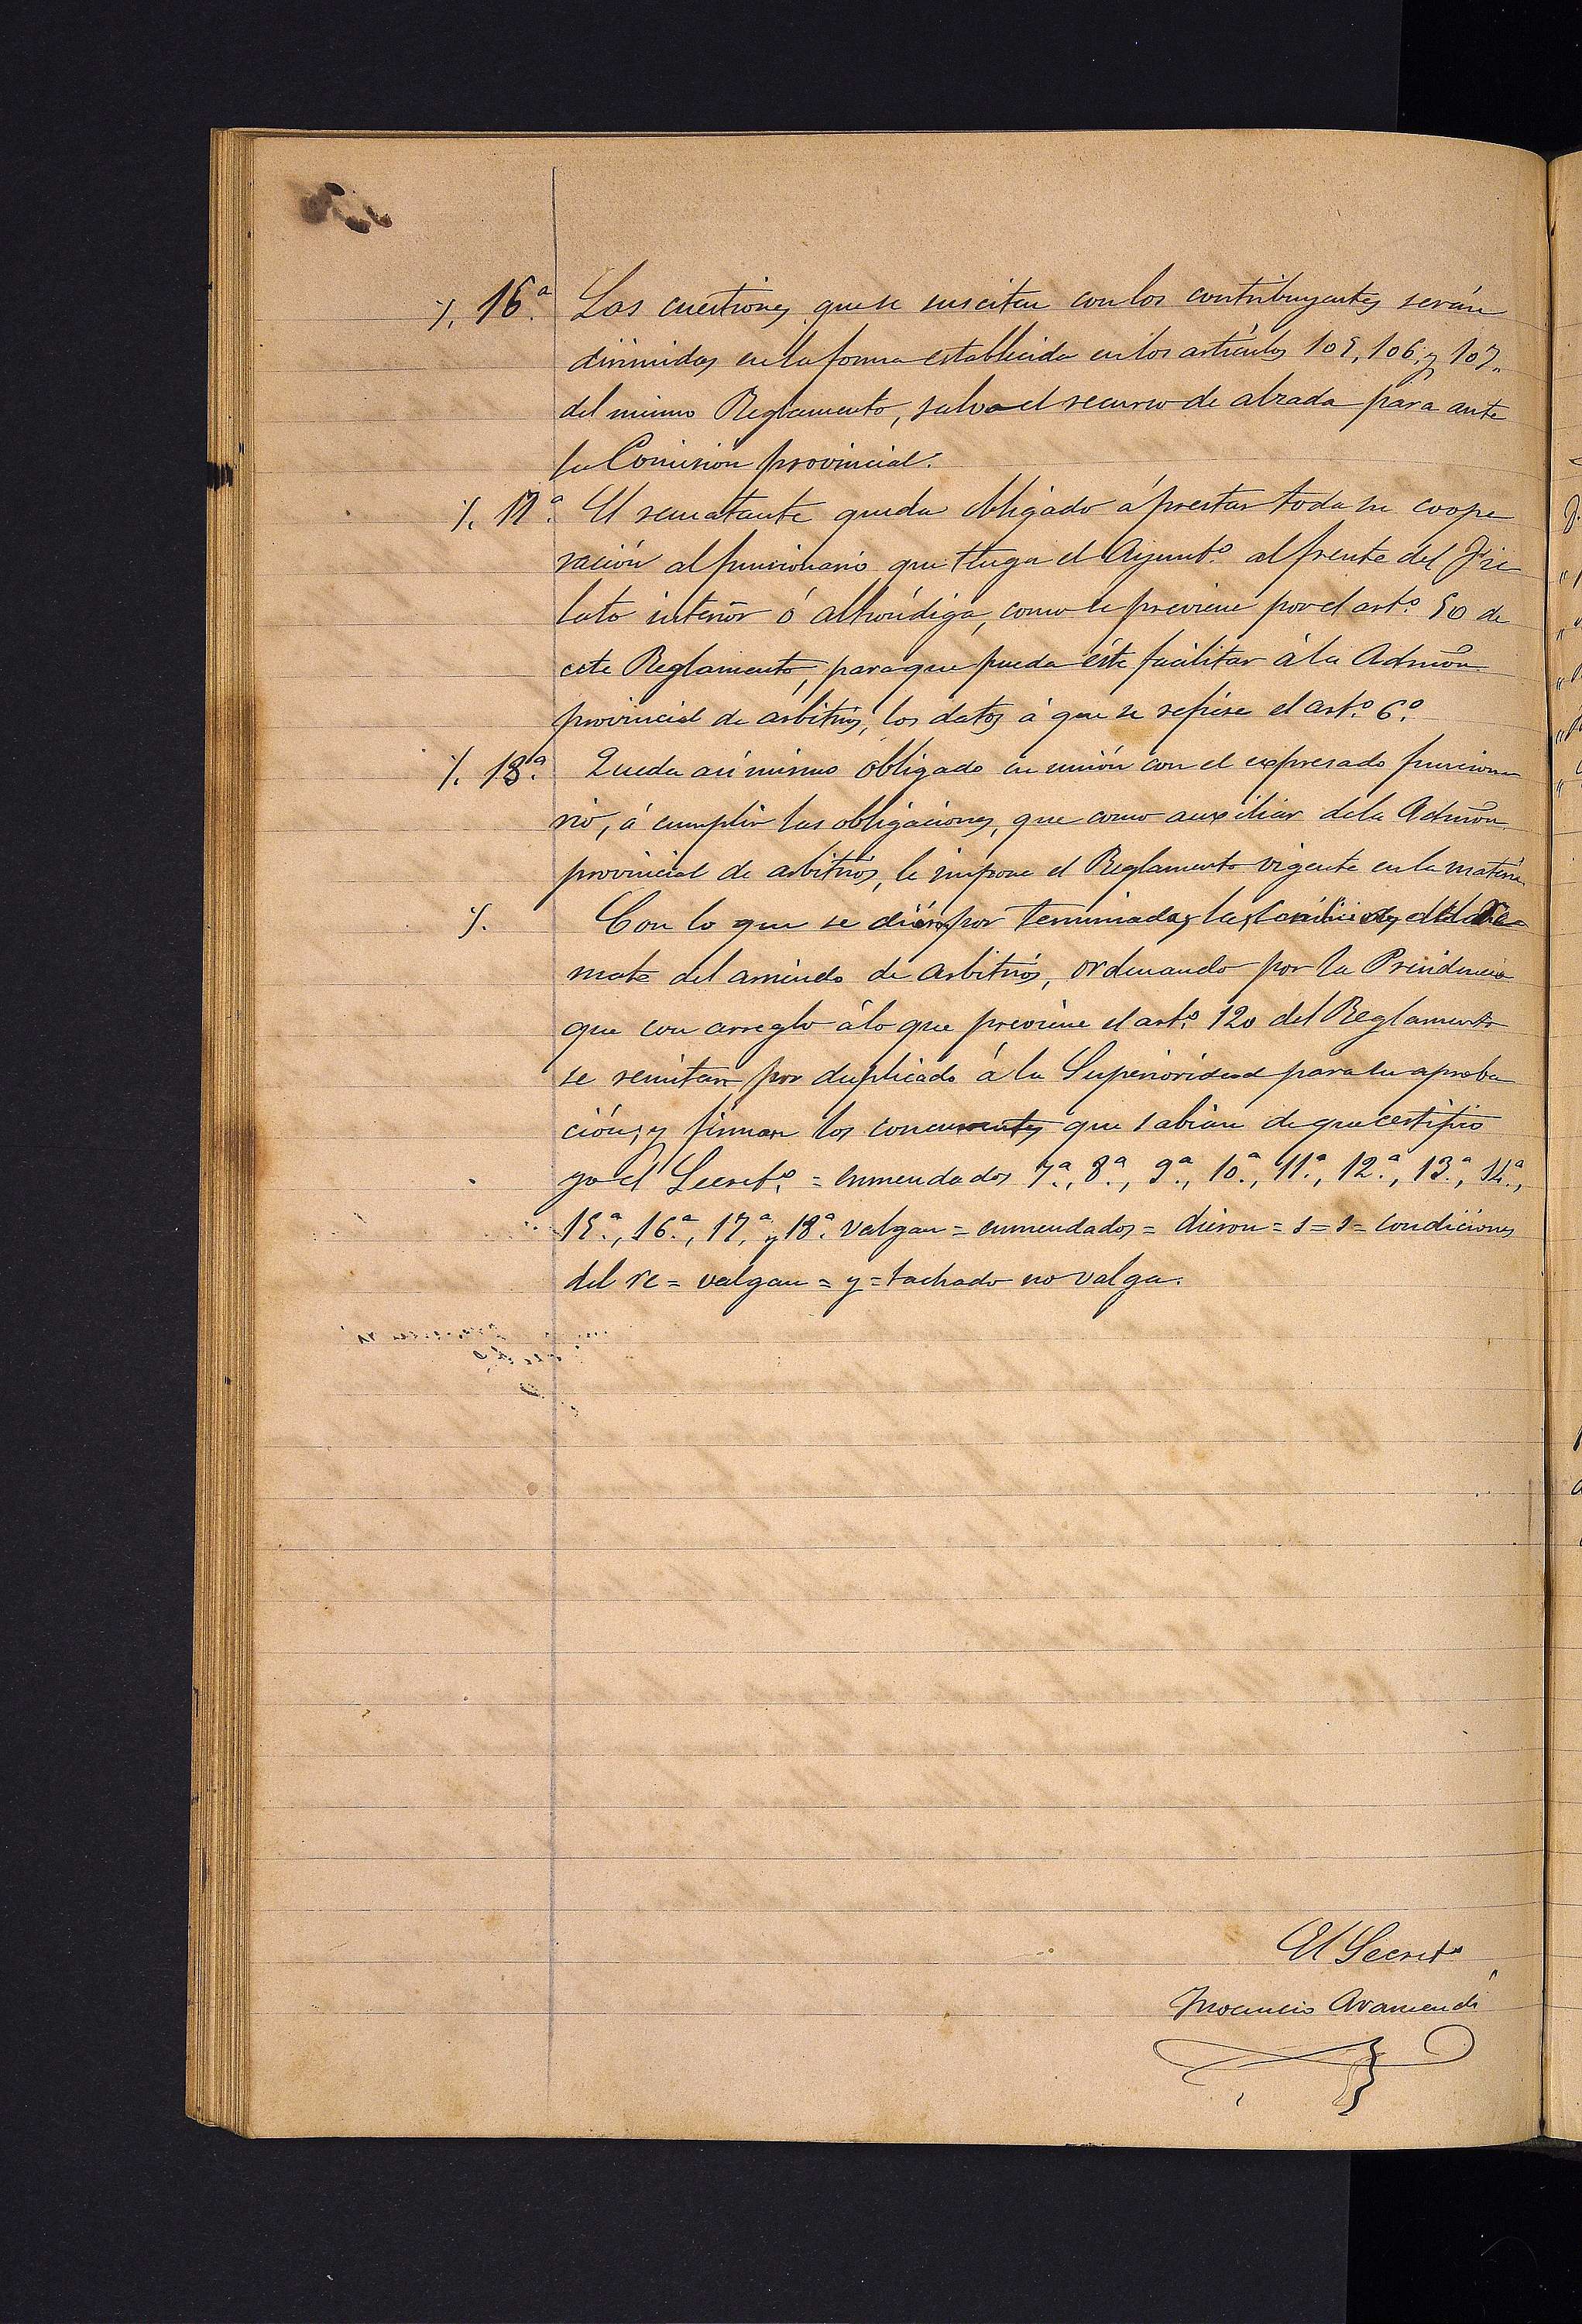 16.ª Las cuestiones que se susciten con los contribuyentes serán
dirimidas en la forma establecida en los artículos 105, 106, y 107.
del mismo Reglamento, salvo el recurso de alzada para ante
la Comisión provincial.
17.ª El rematante queda obligado á prestar toda su coope
ración al funcionario que tenga el Ayunt.º al frente del Fie
lato interior ó alhóndiga, como se previene por el art.º 50 de
este Reglamento, para que pueda éste facilitar á la Admón
provincial de arbitrios, los datos á que se refiere el art.º 6.º
18.ª Queda asi mismo obligado en unión con el expresado funciona
rio, á cumplir las obligaciones, que como auxiliar de la Admón
provincial de arbitrios, le impone el Reglamento vigente en la materia.
Con lo que se dieron por terminadas las condiciones del re
mate del arriendo de arbitrios, ordenando por la Presidencia
que con arreglo á lo que previene el art.º 120 del Reglamento
se remitan por duplicado á la Superioridad para su aproba
ción, y firman los concurrentes que sabian de que certifico
yo el Secret.º = enmendados 7.ª, 8.ª, 9.ª, 10.ª, 11.ª, 12.ª, 13.ª, 14.ª,
15.ª, 16.ª, 17.ª y 18.ª valgan = enmendados = dieron = s = s = condiciones
del re = valgan = y = tachado no valga.
El Secret.º
Inocencio Aramendi